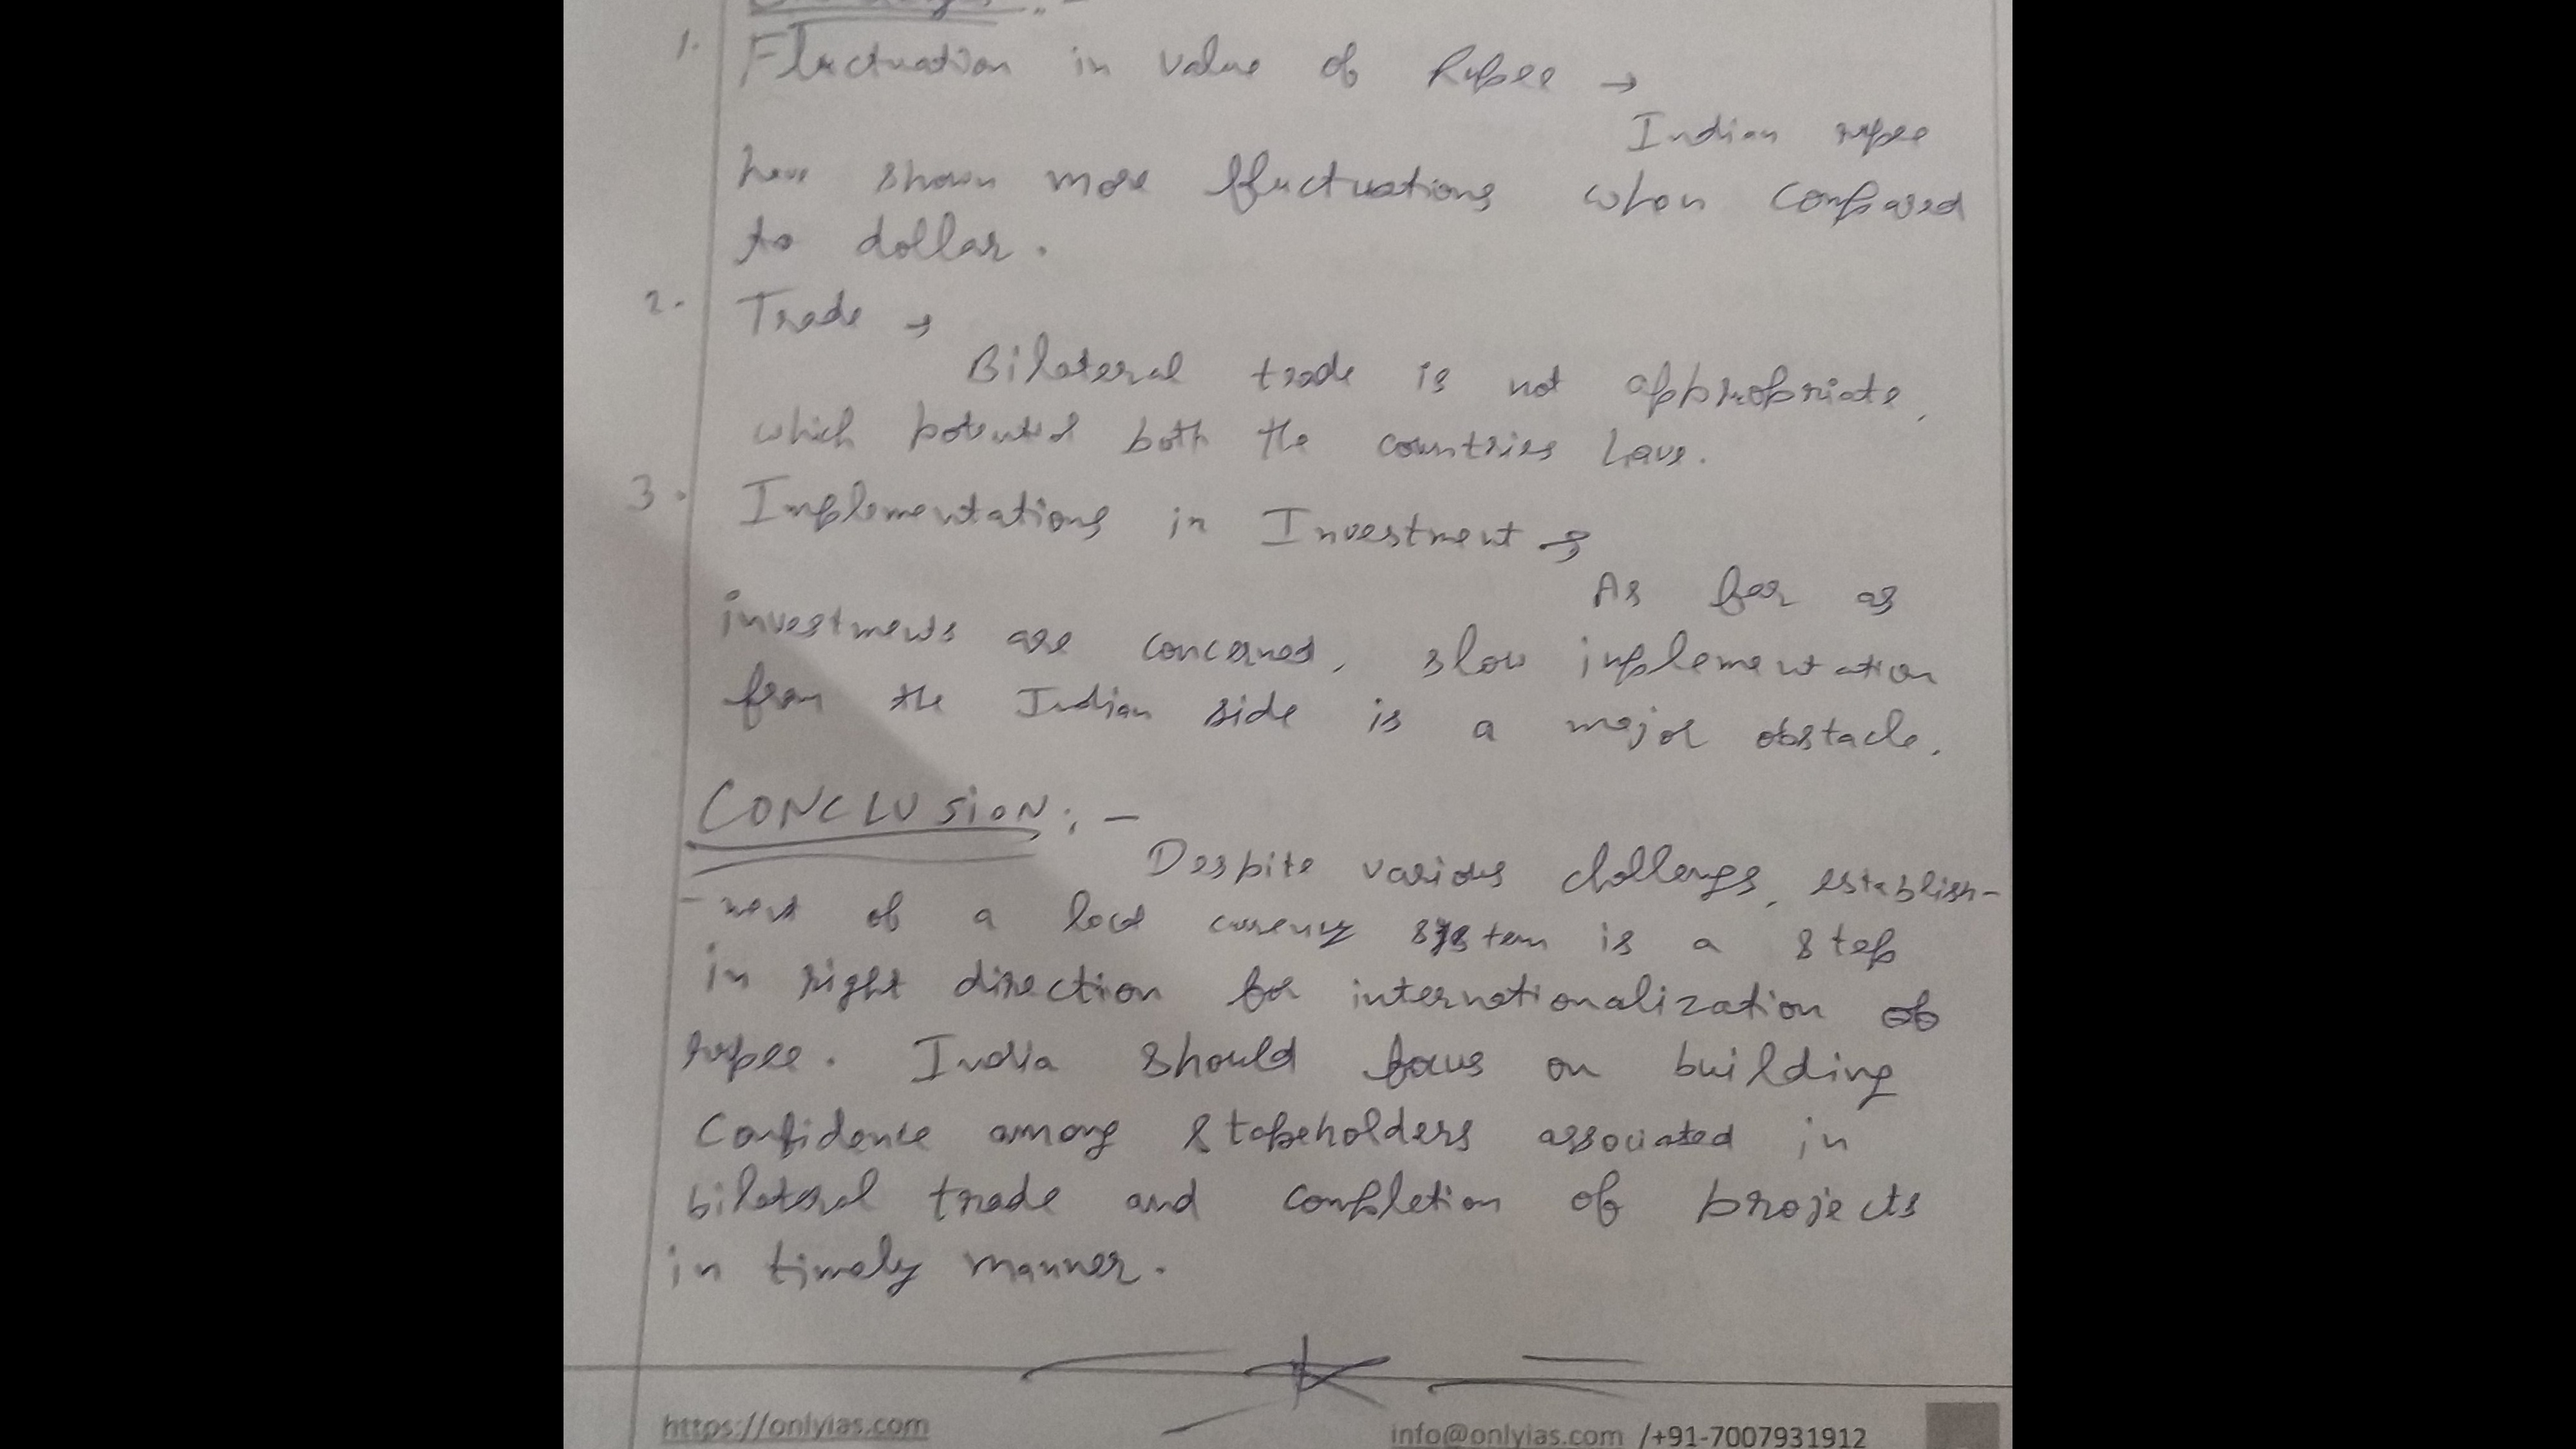 1. Fluctuation in value of Rupee →
Indian rupee
have shown more fluctuations when compared
to dollar.
2. Trade →
Bilateral trade is not appropriate,
which potential both the countries have.
3. Implementations in Investment →
As far as
investments are concerned, slow implementation
from the Indian side is a major obstacle.
CONCLUSION:-
Despite various challenges, establish-
-ment of a local currency system is a step
in right direction for internationalization of
rupee. India should focus on building
Confidence among stakeholders associated in
bilateral trade and completion of projects
in timely manner.
https://onlyias.com
info@onlyias.com /+91-7007931912